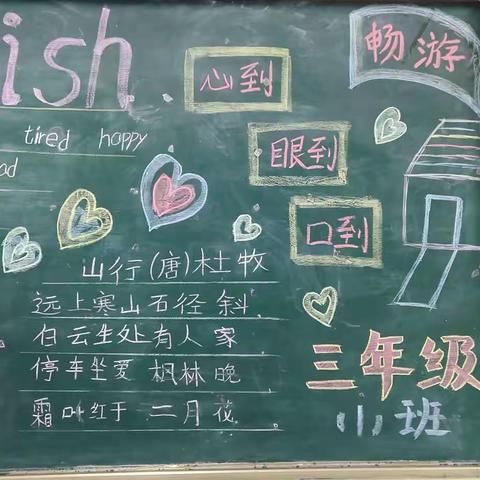 ish
tired happy
ad
心到
眼到
口到
畅游
山行(唐)杜牧
远上寒山石径斜
白云生处有人家
停车坐爱 枫林晚
霜叶红于 二月花
三年级
(1)班